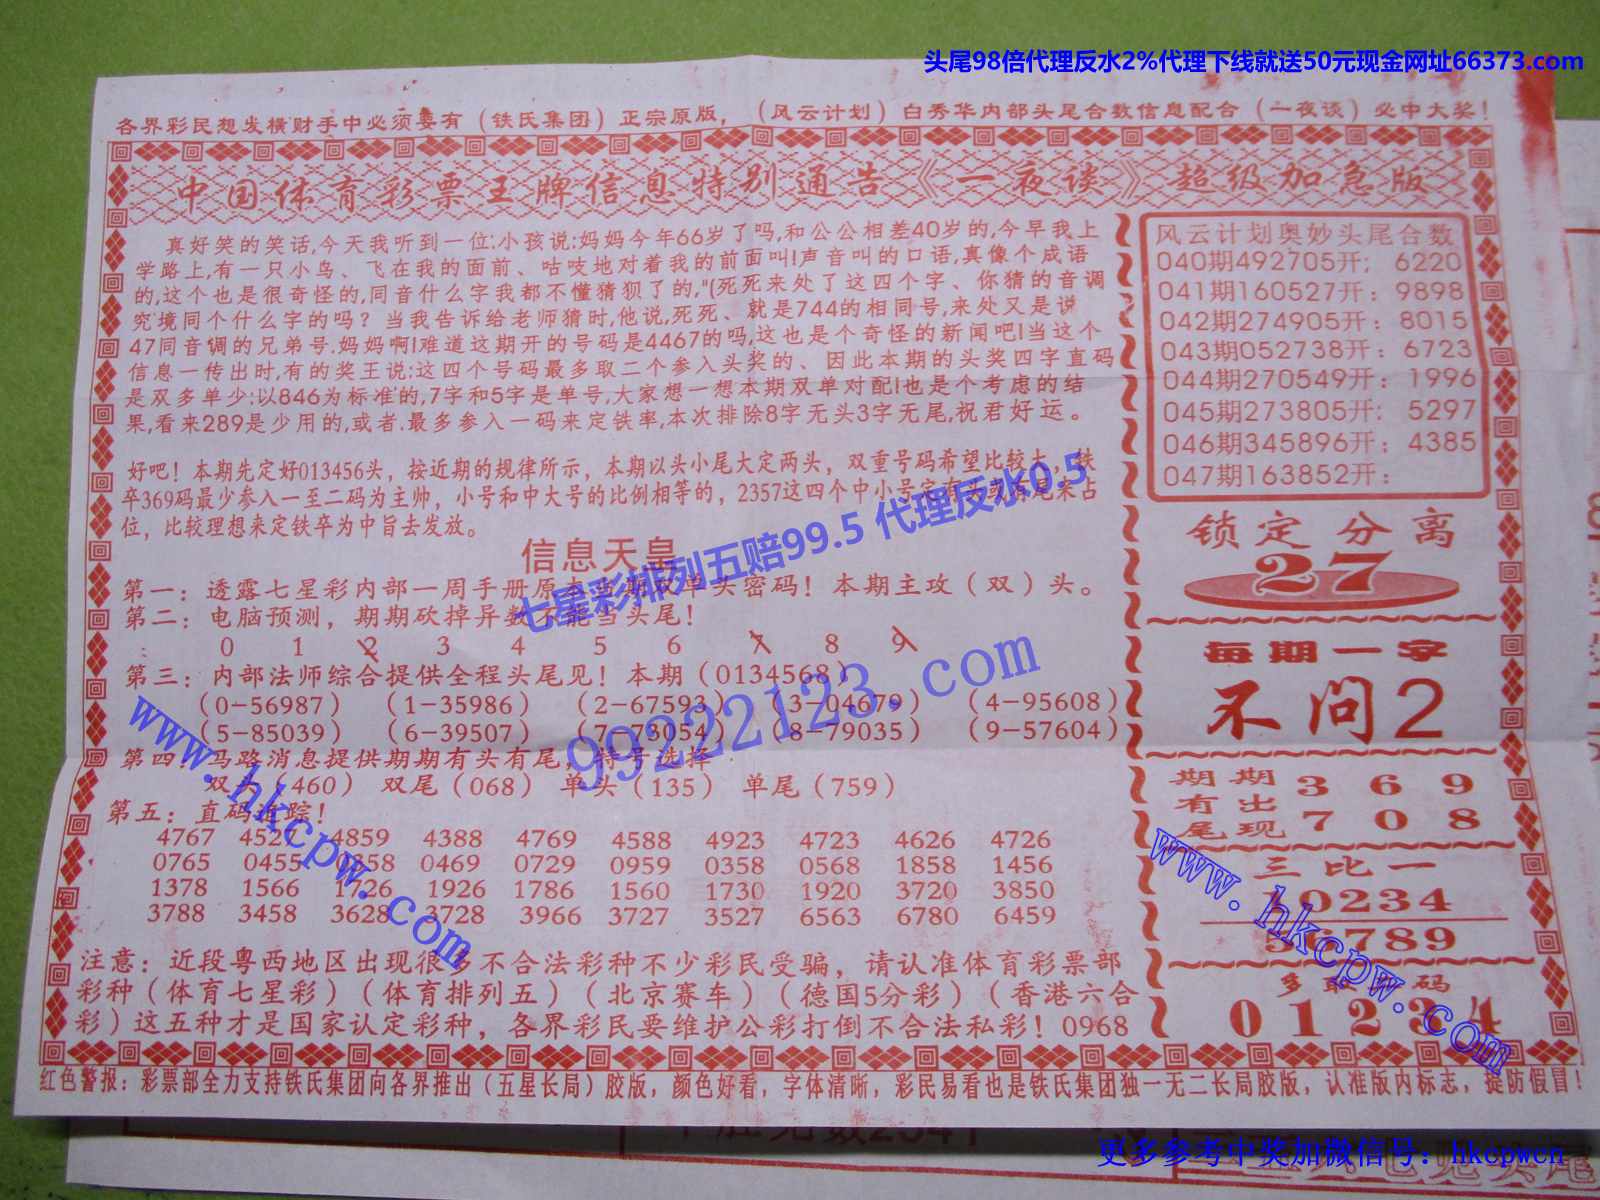 头尾98倍代理反水2%代理下线就送50元现金网址66373.com
各界彩民想发横财手中必须要有（铁氏集团）正宗原版，（风云计划）白秀华内部头尾合数信息配合（一夜谈）必中大奖！
中国体育彩票王牌信息特别通告《一夜谈》超级加急版
真好笑的笑话,今天我听到一位:小孩说:妈妈今年66岁了吗,和公公相差40岁的,今早我上
学路上,有一只小鸟、飞在我的面前、咕吱地对着我的前面叫!声音叫的口语,真像个成语
的,这个也是很奇怪的,同音什么字我都不懂猜狈了的,"(死死来处了这四个字、你猜的音调
究境同个什么字的吗？当我告诉给老师猜时,他说,死死、就是744的相同号,来处又是说
47同音调的兄弟号.妈妈啊!难道这期开的号码是4467的吗,这也是个奇怪的新闻吧!当这个
信息一传出时,有的奖王说:这四个号码最多取二个参入头奖的、因此本期的头奖四字直码
是双多单少:以846为标准的,7字和5字是单号,大家想一想本期双单对配!也是个考虑的结
果,看来289是少用的,或者.最多参入一码来定铁率,本次排除8字无头3字无尾,祝君好运。
好吧！本期先定好013456头，按近期的规律所示，本期以头小尾大定两头，双重号码希望比较大，铁
卒369码最少参入一至二码为主帅，小号和中大号的比例相等的，2357这四个中小号定有头或有尾来占
位，比较理想来定铁卒为中旨去发放。
信息天皇
第一：透露七星彩内部一周手册原本当期双单头密码！本期主攻（双）头。
第二：电脑预测，期期砍掉异数不能当头尾！
: 0 1 2 3 4 5 6 7 8 9
第三：内部法师综合提供全程头尾见！本期（0134568）
（0-56987） （1-35986） （2-67593） （3-04679） （4-95608）
（5-85039） （6-39507） （7-73054） （8-79035） （9-57604）
第四：马路消息提供期期有头有尾，特号选择
双头（460） 双尾（068） 单头（135） 单尾（759）
第五：直码追踪！
4767 4527 4859 4388 4769 4588 4923 4723 4626 4726
0765 0455 0258 0469 0729 0959 0358 0568 1858 1456
1378 1566 1726 1926 1786 1560 1730 1920 3720 3850
3788 3458 3628 3728 3966 3727 3527 6563 6780 6459
注意：近段粤西地区出现很多不合法彩种不少彩民受骗，请认准体育彩票部
彩种（体育七星彩）（体育排列五）（北京赛车）（德国5分彩）（香港六合
彩）这五种才是国家认定彩种，各界彩民要维护公彩打倒不合法私彩！0968
风云计划奥妙头尾合数
040期492705开；6220
041期160527开：9898
042期274905开：8015
043期052738开：6723
044期270549开：1996
045期273805开：5297
046期345896开：4385
047期163852开：
锁定分离
27
每期一字
不问2
期期 3 6 9
有出
尾现 7 0 8
三比一
10234
56789
多取 码
0 1 2 3 4
红色警报：彩票部全力支持铁氏集团向各界推出（五星长局）胶版，颜色好看，字体清晰，彩民易看也是铁氏集团独一无二长局胶版，认准版内标志，提防假冒！
七星彩排列五赔99.5 代理反水0.5
99222123.com
www.hkcpw.com
www.hkcpw.com
更多参考中奖加微信号：hkcpwcn